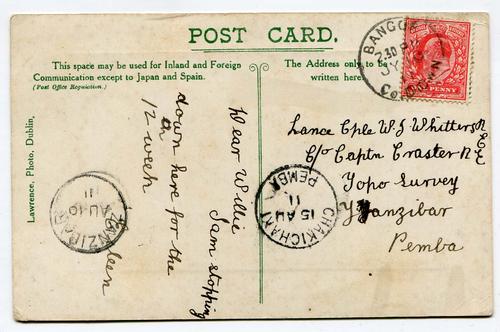 POST CARD.
This space may be used for Inland and Foreign
Communication except to Japan and Spain.
(Post Office Regulation.)
The Address only to be
written here
Lawrence, Photo, Dublin,
Dear Willie
I am stopping
down here for the
12 week
Lance Cple W. J Whitters R E
C/o Captn Craster R E
Topo Survey
Zanzibar
Pemba
BANGOR
2.30 PM
JY
Co DOWN
PENNY
CHAKICHAKI
15 AU
11
PEMBA
ZANZIBAR
AU 10
11